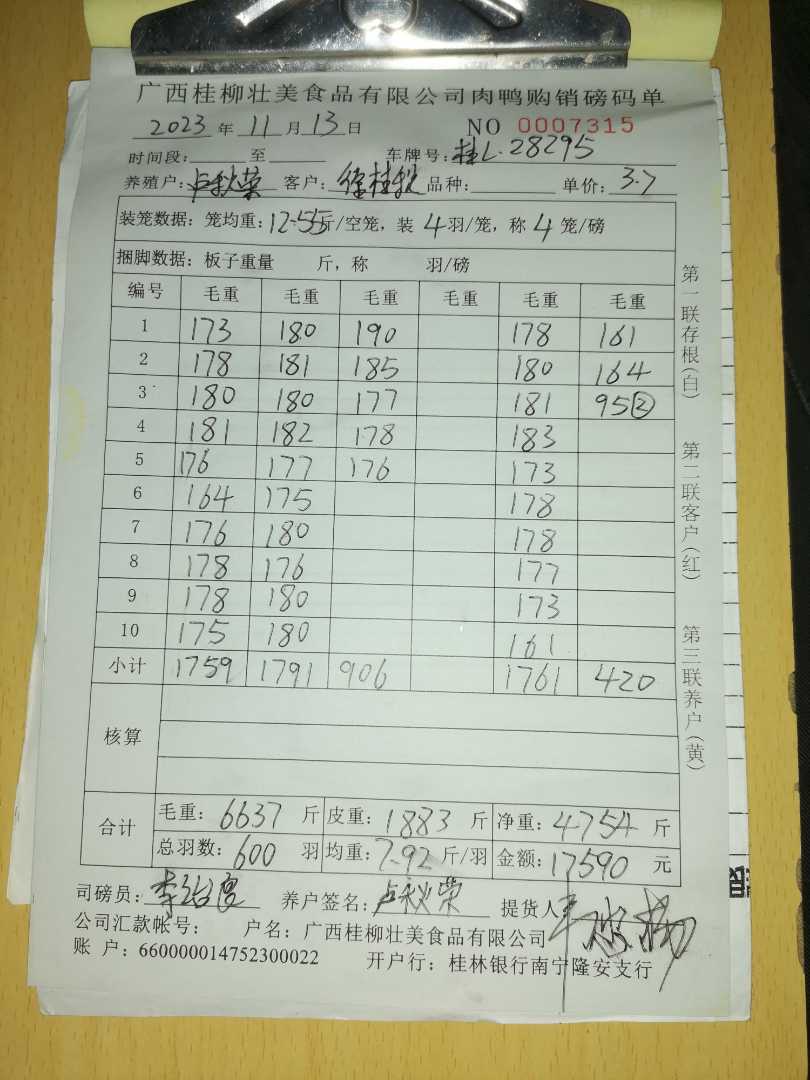 广西桂柳壮美食品有限公司肉鸭购销磅码单
2023 年 11 月 13 日 NO 0007315
时间段: 至 车牌号: 桂L·28295
养殖户: 卢秋荣 客户: 徐桂 品种: 单价: 3.7
装笼数据: 笼均重: 12.55斤/空笼, 装 4 羽/笼, 称 4 笼/磅
捆脚数据: 板子重量 斤, 称 羽/磅
编号 毛重 毛重 毛重 毛重 毛重 毛重
1 173 180 190 178 161
2 178 181 185 180 164
3 180 180 177 181 95②
4 181 182 178 183
5 176 177 176 173
6 164 175 178
7 176 180 178
8 178 176 177
9 178 180 173
10 175 180 161
小计 1759 1791 906 1761 420
核算
合计 毛重: 6637 斤 皮重: 1883 斤 净重: 4754 斤
总羽数: 600 羽 均重: 7.92 斤/羽 金额: 17590 元
司磅员: 李 养户签名: 卢秋荣 提货人
公司汇款帐号: 户名: 广西桂柳壮美食品有限公司
账 户: 660000014752300022 开户行: 桂林银行南宁隆安支行
第一联存根(白)
第二联客户(红)
第三联养户(黄)